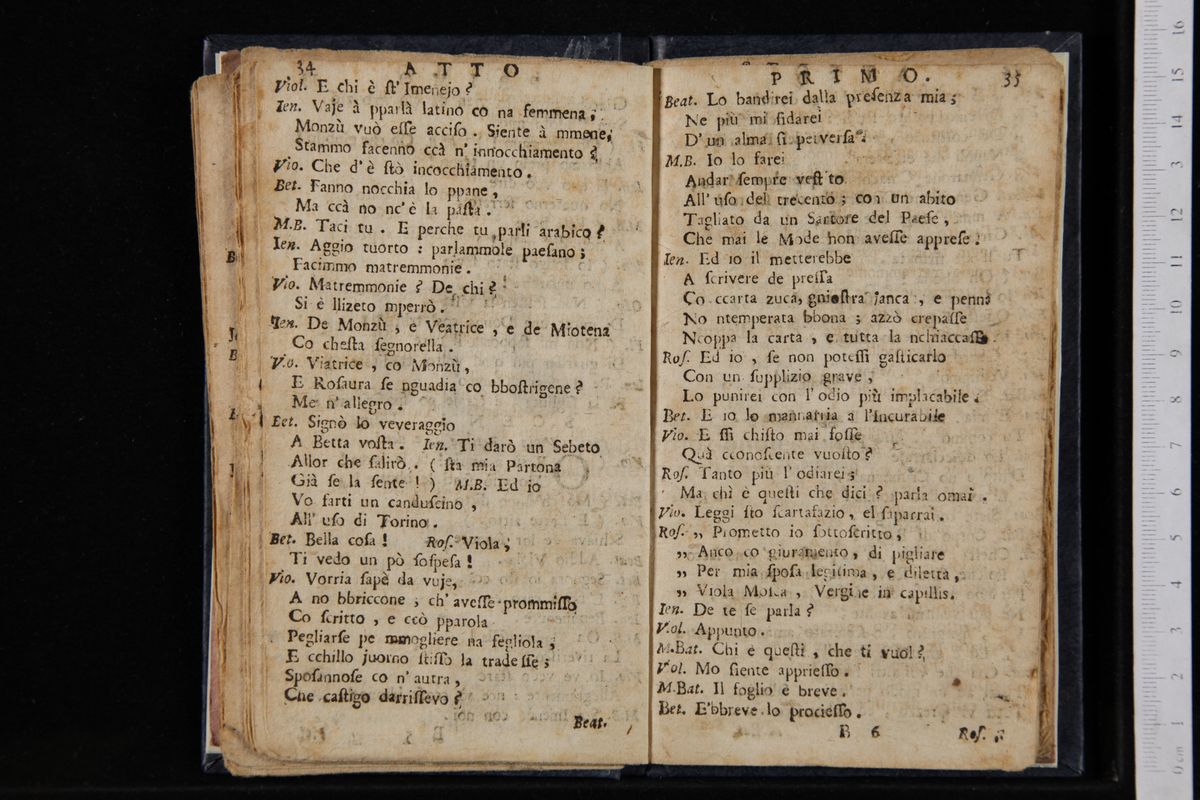 34 ATTO
Viol. E chi è ſt' Imenejo?
Ien. Vaje à pparlà latino co na femmena;
Monzù vuò eſſe acciſo. Siente à mmene,
Stammo facenno ccà n' innocchiamento?
Vio. Che d' è ſtò incocchiamento.
Bet. Fanno nocchia lo ppane,
Ma ccà no nc' è la paſta.
M.B. Taci tu. E perche tu parli arabico?
Ien. Aggio tuorto: parlammole paeſano;
Facimmo matremmonie.
Vio. Matremmonie? De chi?
Si è llizeto mperrò.
Ien. De Monzù, e Veatrice, e de Miotena
Co cheſta ſegnorella.
Vio. Viatrice, co Monzù,
E Roſaura ſe nguadia co bboſtrigene?
Me n' allegro.
Bet. Signò lo veveraggio
A Betta voſta. Ien. Ti darò un Sebeto
Allor che ſalirò. (ſta mia Partona
Già ſe la ſente!) M.B. Ed io
Vo farti un canduſcino,
All' uſo di Torino.
Bet. Bella coſa! Roſ. Viola,
Ti vedo un pò ſoſpeſa!
Vio. Vorria ſapè da vuje,
A no bbriccone, ch' aveſſe prommiſſo
Co ſcritto, e ccò pparola
Pegliarſe pe mmogliere na fegliola,
E cchillo juorno ſtiſſo la tradeſſe;
Spoſannoſe co n' autra,
Che caſtigo darriſſevo?
Beat.
PRIMO. 35
Beat. Lo bandirei dalla preſenza mia;
Ne più mi fidarei
D' un alma ſi perverſa.
M.B. Io lo farei
Andar ſempre veſtito
All' uſo del trecento; con un abito
Tagliato da un Sartore del Paeſe,
Che mai le Mode non aveſſe appreſe.
Ien. Ed io il metterebbe
A ſcrivere de preſſa
Co ccarta zuca, gnioſtra janca, e penna
No ntemperata bbona; azzò crepaſſe
Ncoppa la carta, e tutta la nchiaccaſſe.
Roſ. Ed io, ſe non poteſſi gaſticarlo
Con un ſupplizio grave,
Lo punirei con l' odio più implacabile.
Bet. E io lo mannarria a l'Incurabile
Vio. E ſſi chiſto mai foſſe
Quà cconoſcente vuoſto?
Roſ. Tanto più l' odiarei;
Ma chì è queſti che dici? parla omai.
Vio. Leggi ſto ſcartafazio, el ſaparrai.
Roſ. „ Prometto io ſottoſcritto,
„ Anco co giuramento, di pigliare
„ Per mia ſpoſa legitima, e diletta,
„ Viola Moſca, Vergine in capillis.
Ien. De te ſe parla?
Viol. Appunto.
M.Bat. Chi è queſti, che ti vuol?
Viol. Mo ſiente apprieſſo.
M.Bat. Il foglio è breve.
Bet. E'bbreve lo procieſſo.
B 6 Roſ.